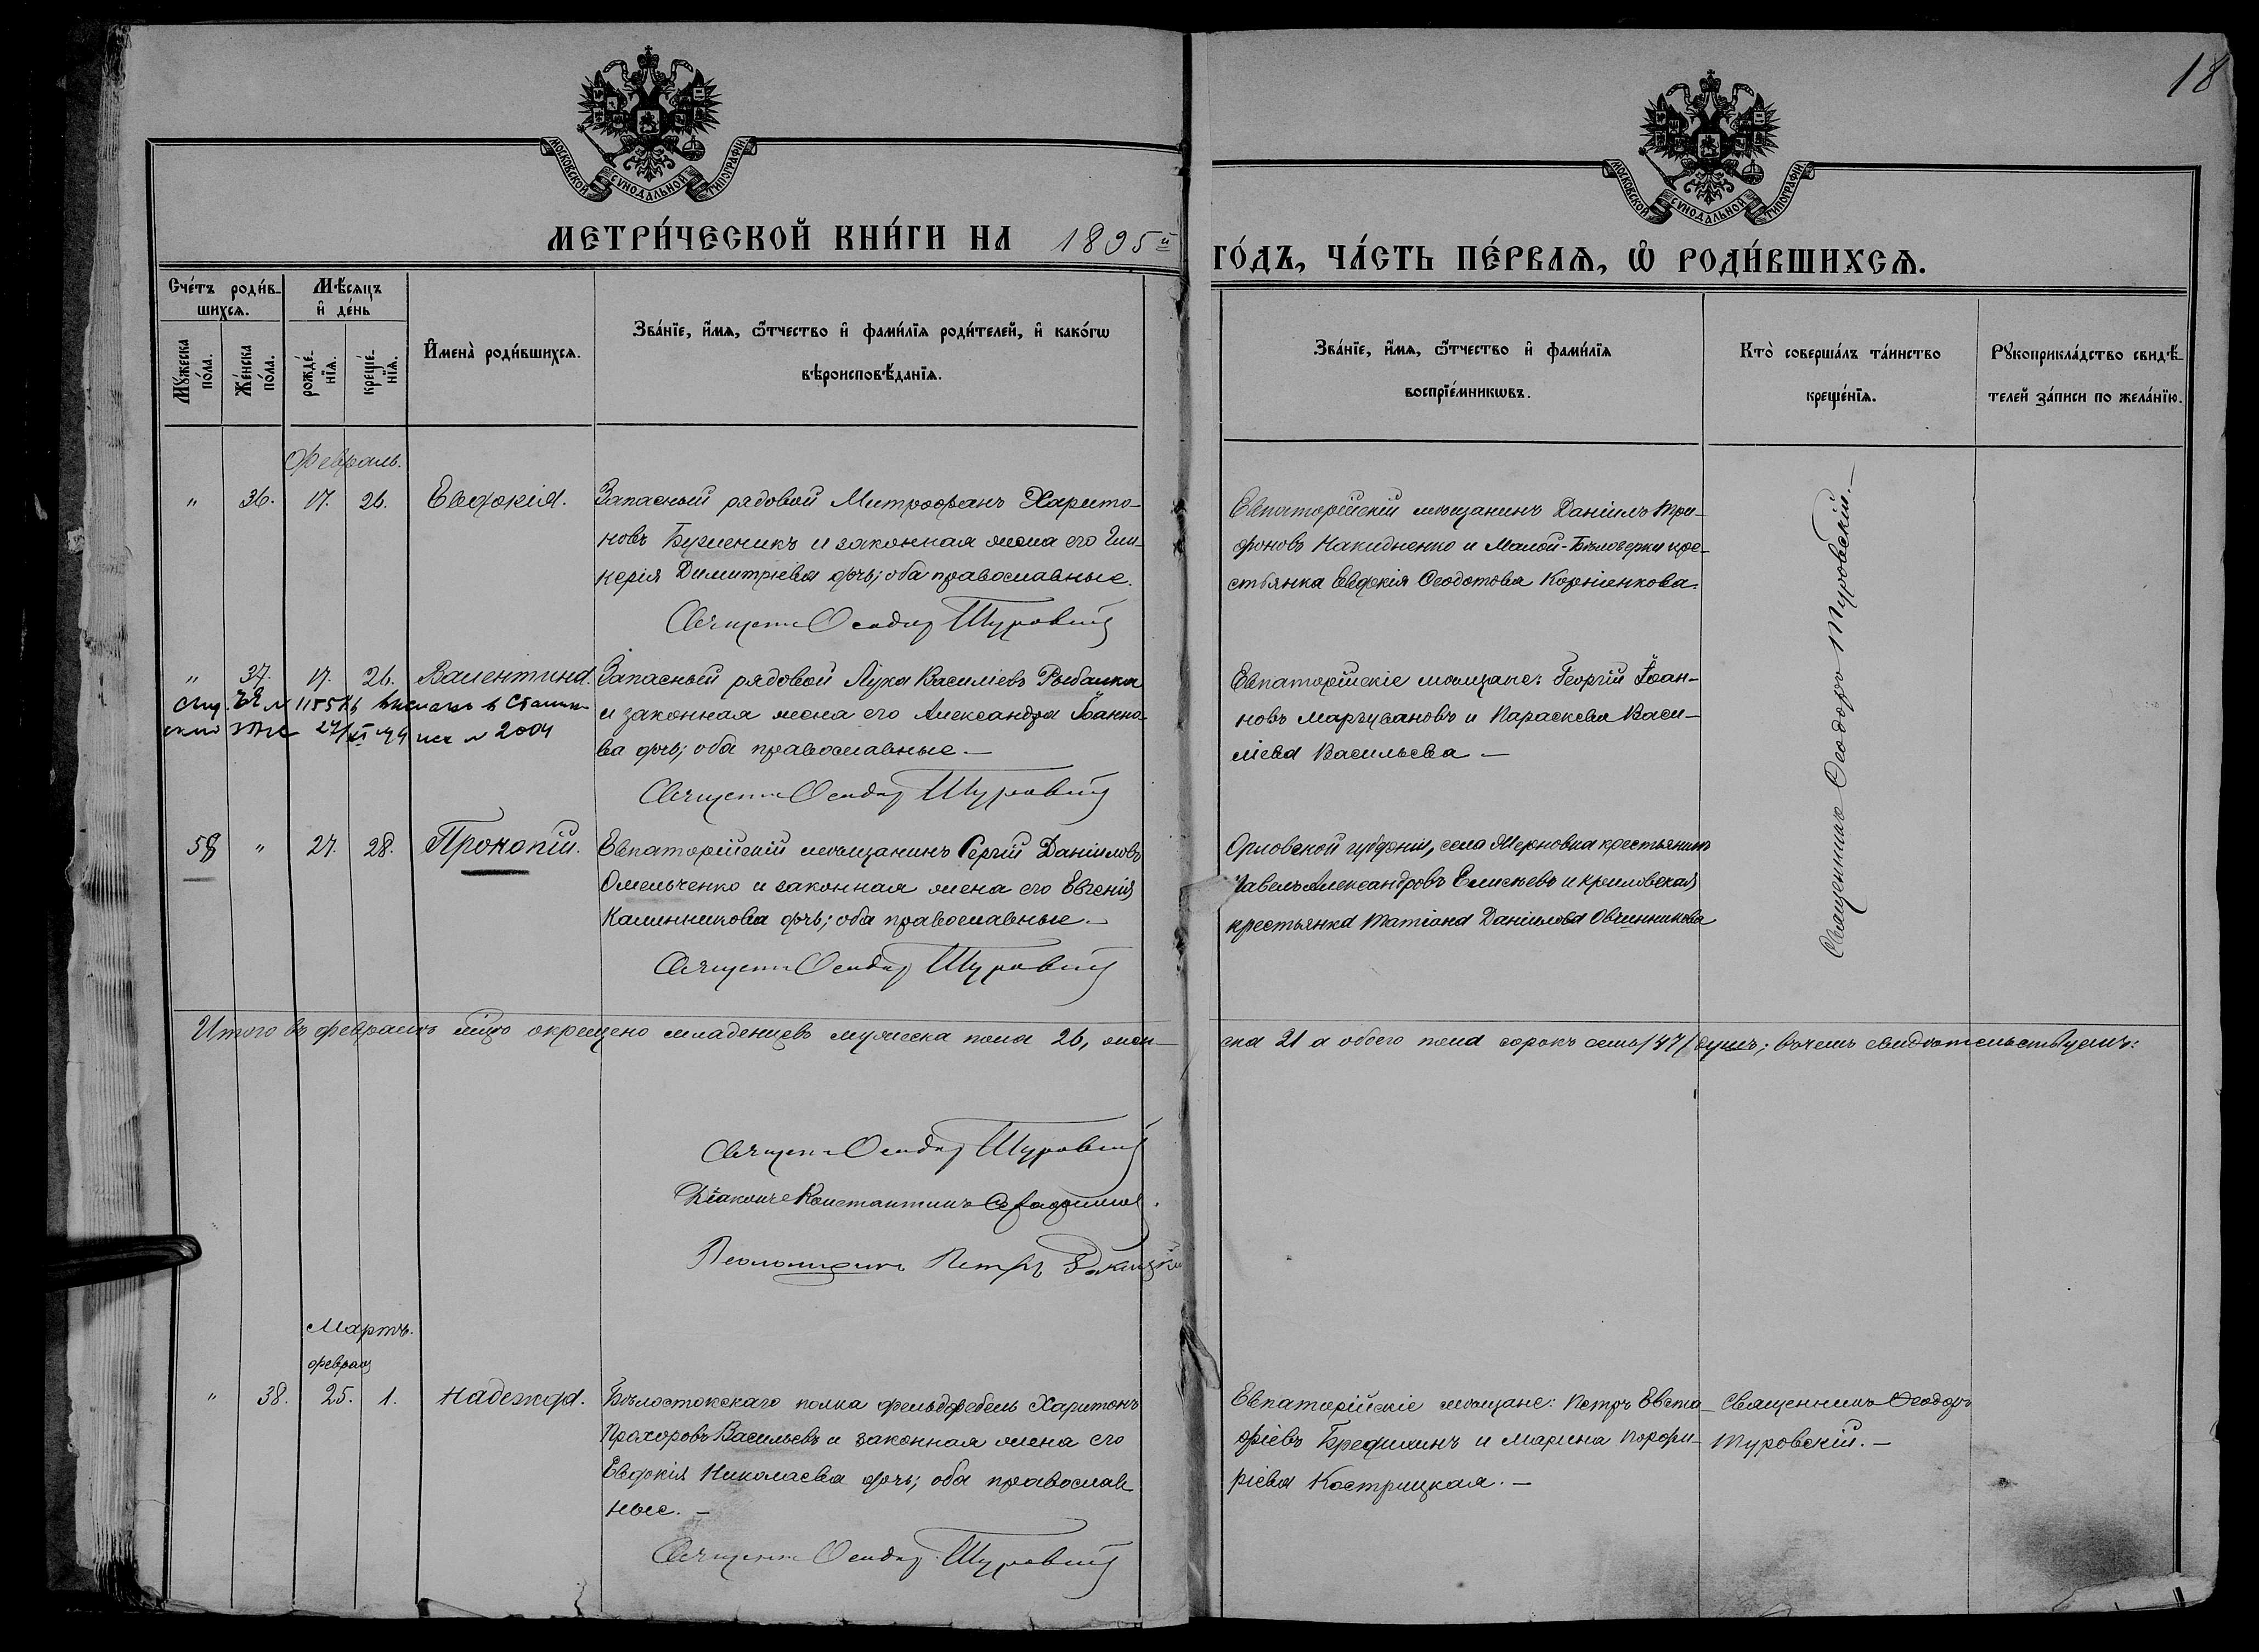 18
МОСКОВСКОЙ СѴНОДАЛЬНОЙ ТИПОГРАФІИ
МОСКОВСКОЙ СѴНОДАЛЬНОЙ ТИПОГРАФІИ
МЕТРИ́ЧЕСКОЙ КНИ́ГИ НА 1895й
ГО́ДЪ, ЧА́СТЬ ПЕ́РВАѦ, Ѡ҆ РОДИ́ВШИХСѦ.
Сче́тъ роди́в-
шихсѧ.
Мѣ́сѧцъ
и҆ де́нь
Мꙋ́жеска
по́ла.
Же́нска
по́ла.
рожде́-
нїѧ.
креще́-
нїѧ.
И҆мена̀ роди́вшихсѧ.
Зва́нїе, и҆́мѧ, ѻ҆́тчество и҆ фами́лїѧ роди́телей, и҆ како́гѡ
вѣроисповѣ́данїѧ.
Зва́нїе, и҆́мѧ, ѻ҆́тчество и҆ фами́лїѧ
воспрїе́мникѡвъ.
Кто̀ соверша́лъ та́инство
креще́нїѧ.
Рꙋкоприкла́дство свидѣ́-
телей за́писи по жела́нїю.
Февраль.
" 36. 17. 26. Евдокія. Запасный рядовой Митрофанъ Харито-
новъ Бузменикъ и законная жена его Гли-
керія Димитріева дочь; оба православные.
Священ. Ѳеодор Туровскій
Евпаторійскій мѣщанинъ Даніилъ Три-
фоновъ Накидненко и Малой-Бѣлозерки кре-
стьянка Евдокія Ѳеодотова Корніенкова.
" 37. 17. 26. Валентина. Запасный рядовой Лука Василіевъ Рыбалка
и законная жена его Александра Іоанно-
ва дочь; оба православные. —
Священ. Ѳеодор Туровскій
27/XI 49 исх № 2004
Евпаторійскіе мѣщане: Георгій Іоан-
новъ Маргусановъ и Параскева Васи-
ліева Васильева —
58 " 27. 28. Прокопій. Евпаторійскій мѣщанинъ Сергій Даніиловъ
Омельченко и законная жена его Евгенія
Калинникова дочь; оба православные. —
Священ. Ѳеодор Туровскій
Орловской губерніи, села Жерновца крестьянинъ
Павелъ Александровъ Елисѣевъ и
крестьянка Татіана Даніилова Овчинникова
Священникъ Ѳеодоръ Туровскій. —
Итого въ февралѣ мѣс. окрещено младенцевъ мужеска пола 26, жен-
ска 21 а обоего пола сорокъ семь /47/ душъ; въ чемъ свидѣтельствуемъ:
Священ. Ѳеодор Туровскій
Діаконъ Константинъ Серафимов.
Псаломщикъ Петръ
Мартъ.
феврал
" 38. 25. 1. Надежда. Бѣлостокскаго полка фельдфебель Харитонъ
Прохоровъ Васильевъ и законная жена его
Евдокія Николаева дочь; оба православ-
ные. —
Священ. Ѳеодор Туровскій
Евпаторійскіе мѣщане: Петръ Евста-
фіевъ Бредихинъ и Марина Порфи-
ріева Кострицкая. —
Священникъ Ѳеодоръ
Туровскій. —